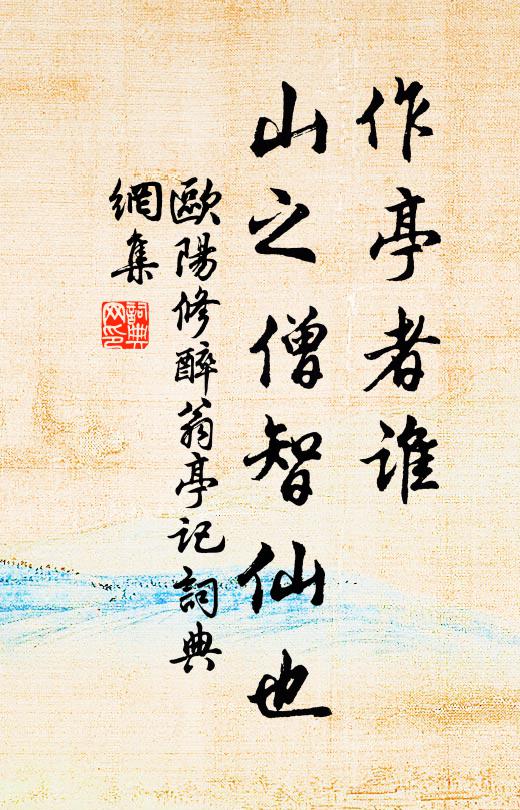 作亭者谁
山之僧智仙也
歐陽修醉翁亭记詞典
網集
詞典
网印